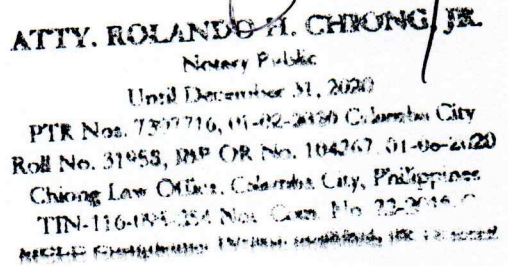 ATTY. ROLANDO H. CHIONG, JR.
Notary Public
Until December 31, 2020
PTR Nos. 7397716, 01-02-2020 Calamba City
Roll No. 31958, IBP OR No. 104267, 01-06-2020
Chiong Law Office, Calamba City, Philippines
TIN-116-094-254 Not. Com. No. 22-2016-C
MCLE Compliance